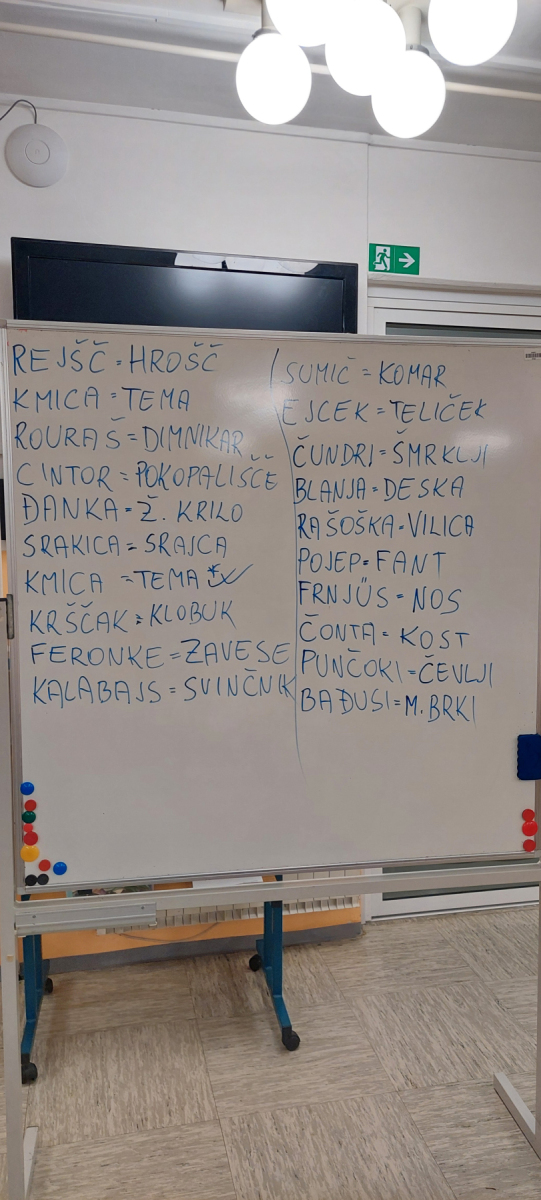 REJŠČ = HROŠČ
KMICA = TEMA
ROURAŠ = DIMNIKAR
CINTOR = POKOPALIŠČE
ĐANKA = Ž. KRILO
SRAKICA = SRAJCA
KMICA = TEMA
KRŠČAK = KLOBUK
FERONKE = ZAVESE
KALABAJS = SVINČNIK
SUMIČ = KOMAR
EJCEK = TELIČEK
ČUNDRI = ŠMRKLJI
BLANJA = DESKA
RAŠOŠKA = VILICA
POJEP = FANT
FRNJŰS = NOS
ČONTA = KOST
PUNČOKI = ČEVLJI
BAĐUSI = M. BRKI